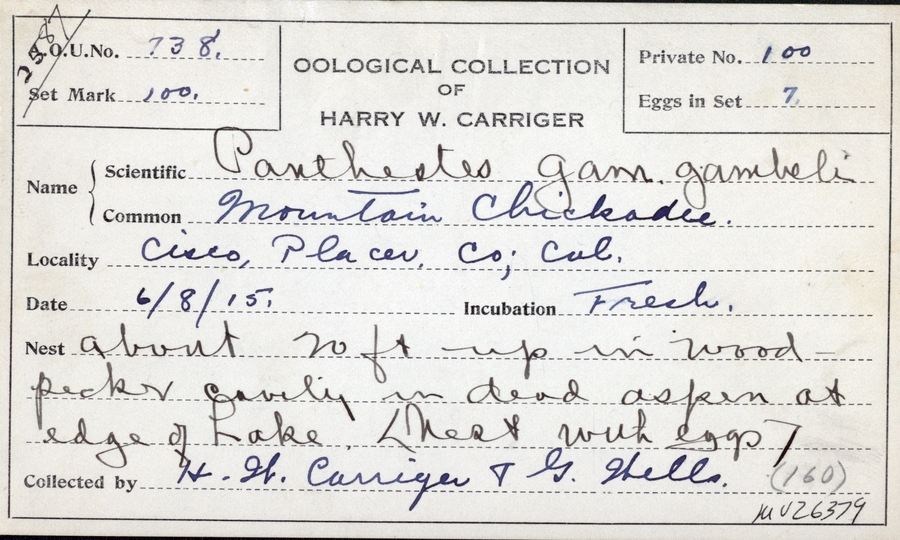 2387
A.O.U.No. 738.
Set Mark 100.
OOLOGICAL COLLECTION
OF
HARRY W. CARRIGER
Private No. 100
Eggs in Set 7
Name
Scientific Panthestes gam. gambeli
Common Mountain Chickadee.
Locality Cisco, Placer. Co; Cal.
Date 6/8/15. Incubation Fresh.
Nest about 20 ft up in wood-
pecker cavity in dead aspen at
edge of Lake. (Nest with eggs)
Collected by H. W. Carriger & G. Wells. (160)
MVZ6379